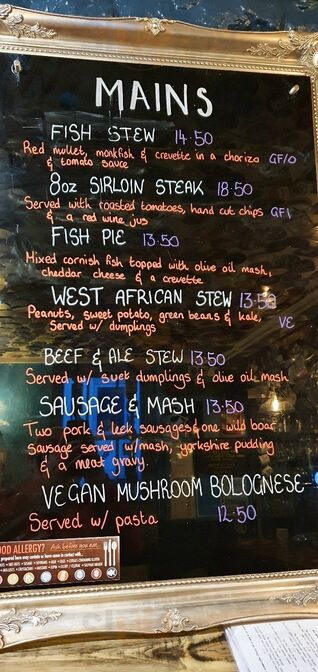 MAINS
FISH STEW 14.50
Red mullet, monkfish & crevette in a chorizo GF/O
& tomato sauce
8oz SIRLOIN STEAK 18.50
Served with roasted tomatoes, hand cut chips GF
& a red wine jus
FISH PIE 13.50
Mixed cornish fish topped with olive oil mash,
cheddar cheese & a crevette
WEST AFRICAN STEW 13.50
Peanuts, sweet potato, green beans & kale,
Served w/ dumplings VE
BEEF & ALE STEW 13.50
Served w/ suet dumplings & olive oil mash
SAUSAGE & MASH 13.50
Two pork & leek sausages & one wild boar
Sausage served w/mash, yorkshire pudding
& a meat gravy.
VEGAN MUSHROOM BOLOGNESE
Served w/ pasta 12.50
ALLERGY? Ask before you eat